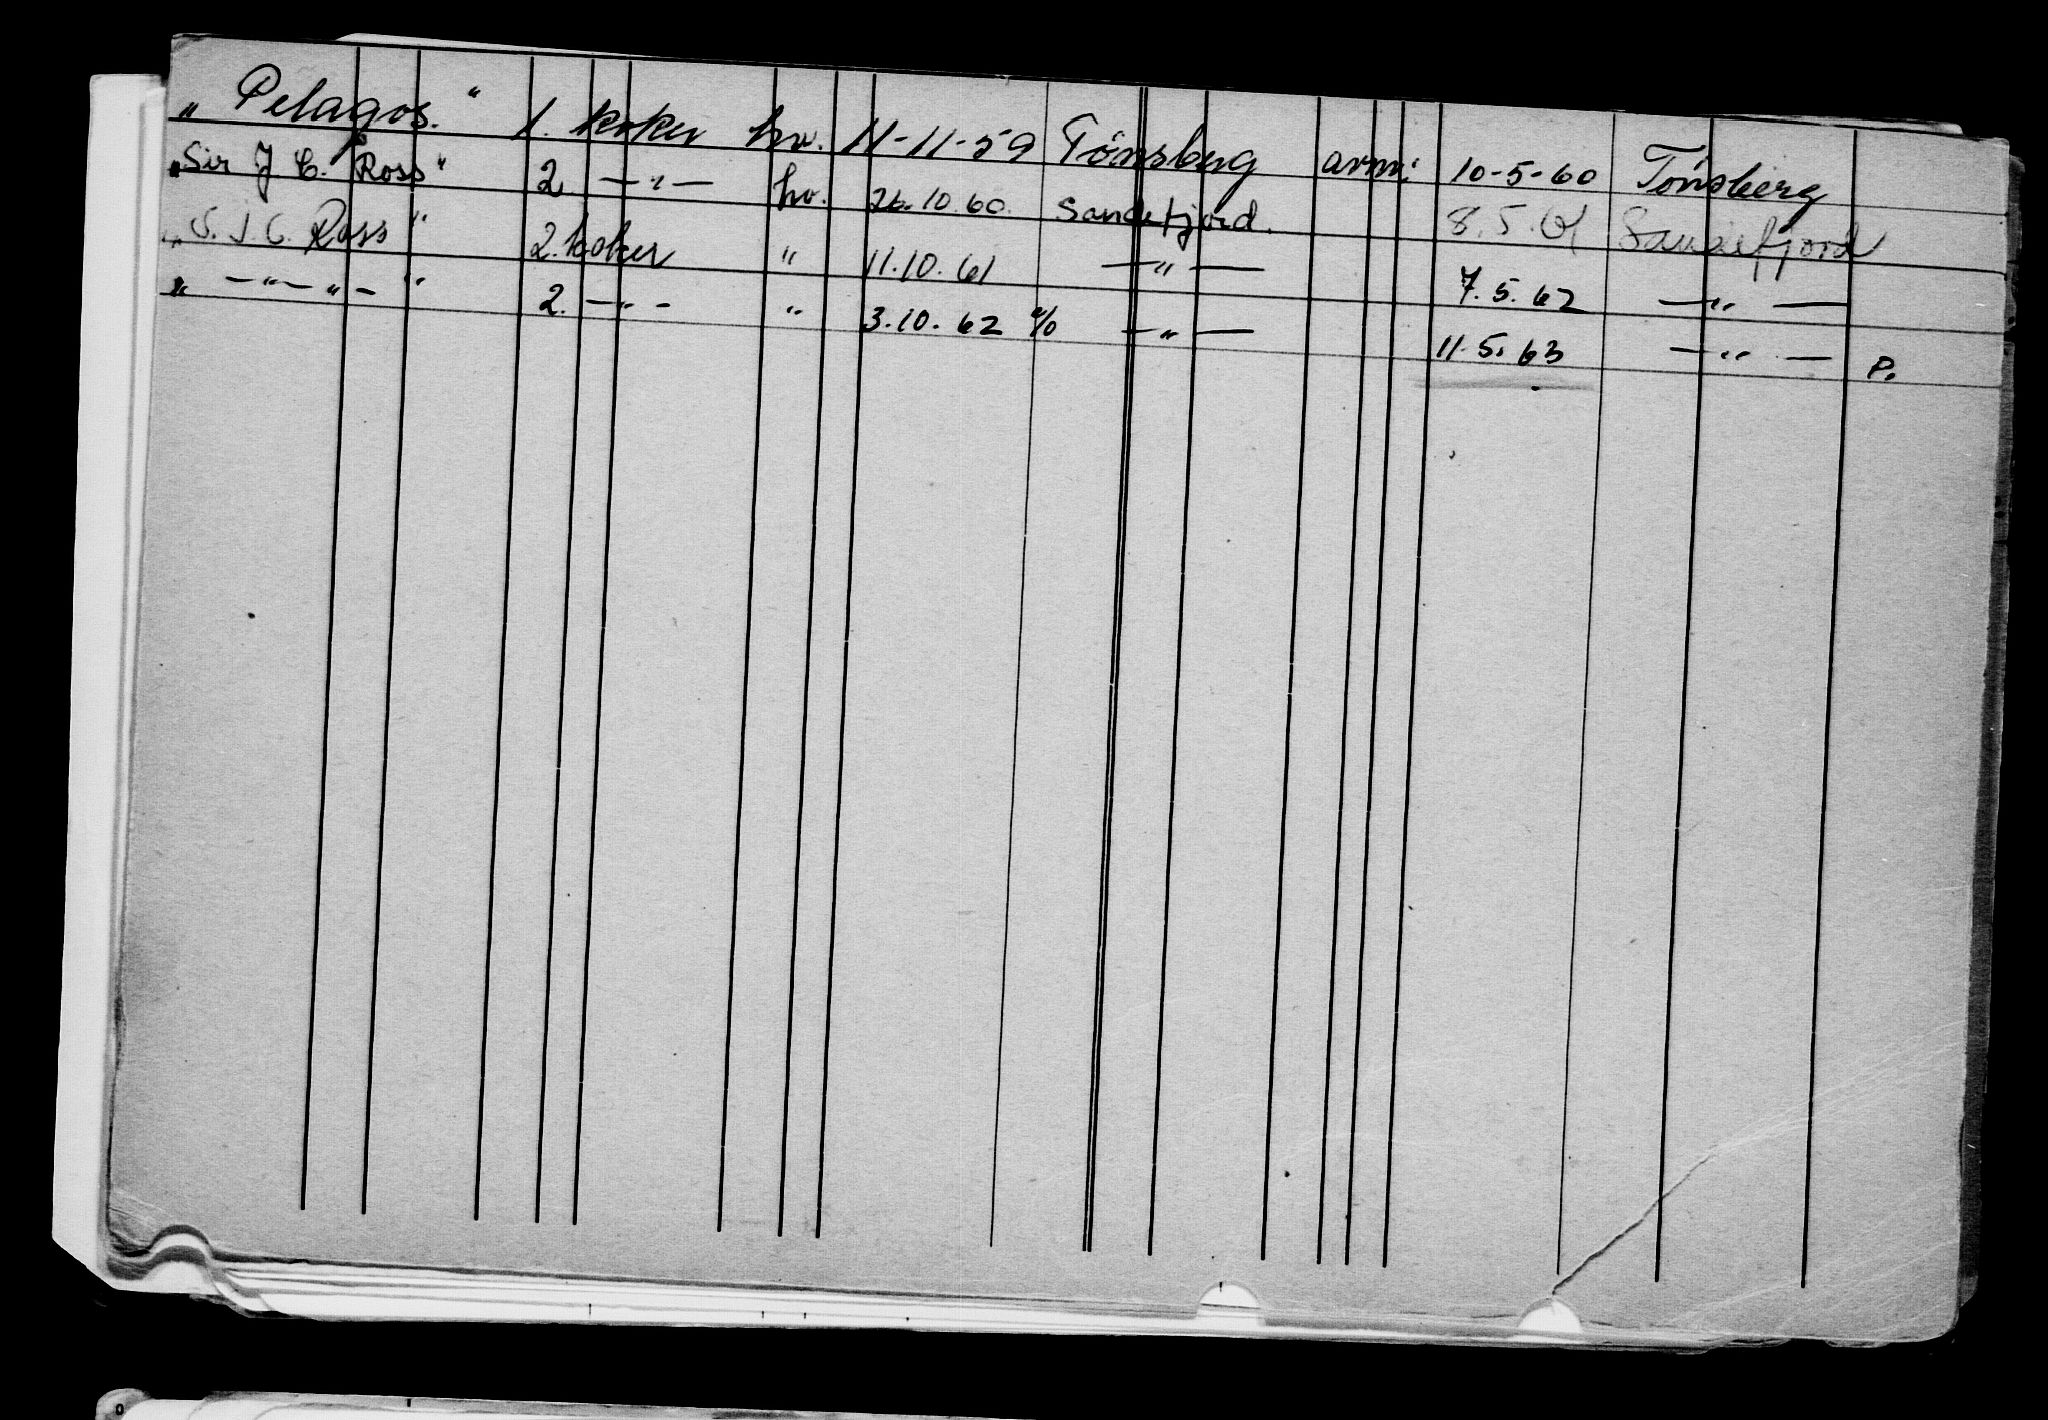 „Pelagos." 1. koker hv. 11-11-59 Tønsberg avm: 10-5-60 Tönsberg
„Sir J C. Ross" 2. —„— hv. 26.10.60. Sandefjord. 8.5.61 Sandefjord
„S. J. C. Ross" 2. koker " 11.10.61 —„— 7.5.62 —„—
„—„—„—" 2. —„— " 3.10.62 —„— 11.5.63 —„— P.